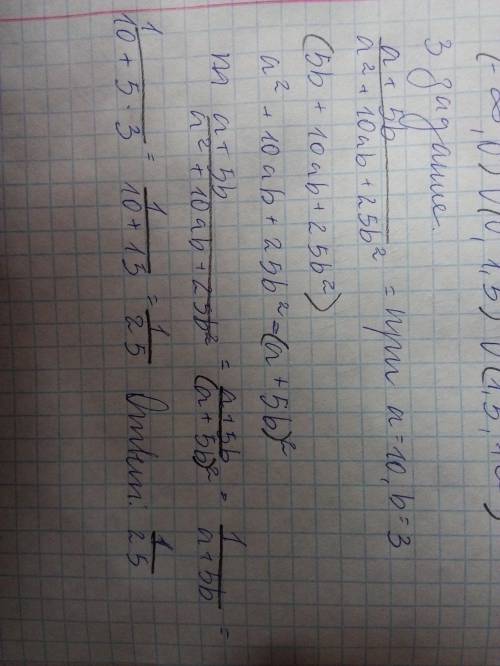 (-∞, 0) ∪ (0, 1,5) ∪ (1,5, +∞)
3 задание.
a+5b / a²+10ab+25b² = при a=10, b=3
(5b + 10ab + 25b²)
a² + 10ab + 25b² = (a + 5b)²
m a+5b / a²+10ab+25b² = a+5b / (a+5b)² = 1 / a+5b =
1 / 10+5·3 = 1 / 10+15 = 1 / 25 Ответ: 1 / 25